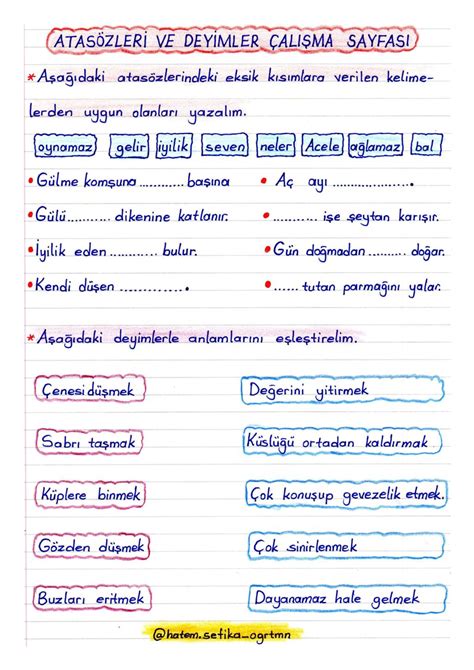 ATASÖZLERİ VE DEYİMLER ÇALIŞMA SAYFASI
*Aşağıdaki atasözlerindeki eksik kısımlara verilen kelime-
lerden uygun olanları yazalım.
oynamaz gelir iyilik seven neler Acele ağlamaz bal
• Gülme komşuna ............ başına • Aç ayı ..................
• Gülü .......... dikenine katlanır. • .......... işe şeytan karışır.
• İyilik eden ........... bulur. • Gün doğmadan .......... doğar.
• Kendi düşen .............. • ...... tutan parmağını yalar.
*Aşağıdaki deyimlerle anlamlarını eşleştirelim.
Çenesi düşmek Değerini yitirmek
Sabrı taşmak Küslüğü ortadan kaldırmak
Küplere binmek Çok konuşup gevezelik etmek.
Gözden düşmek Çok sinirlenmek
Buzları eritmek Dayanamaz hale gelmek
@hatem.sefika_ogrtmn